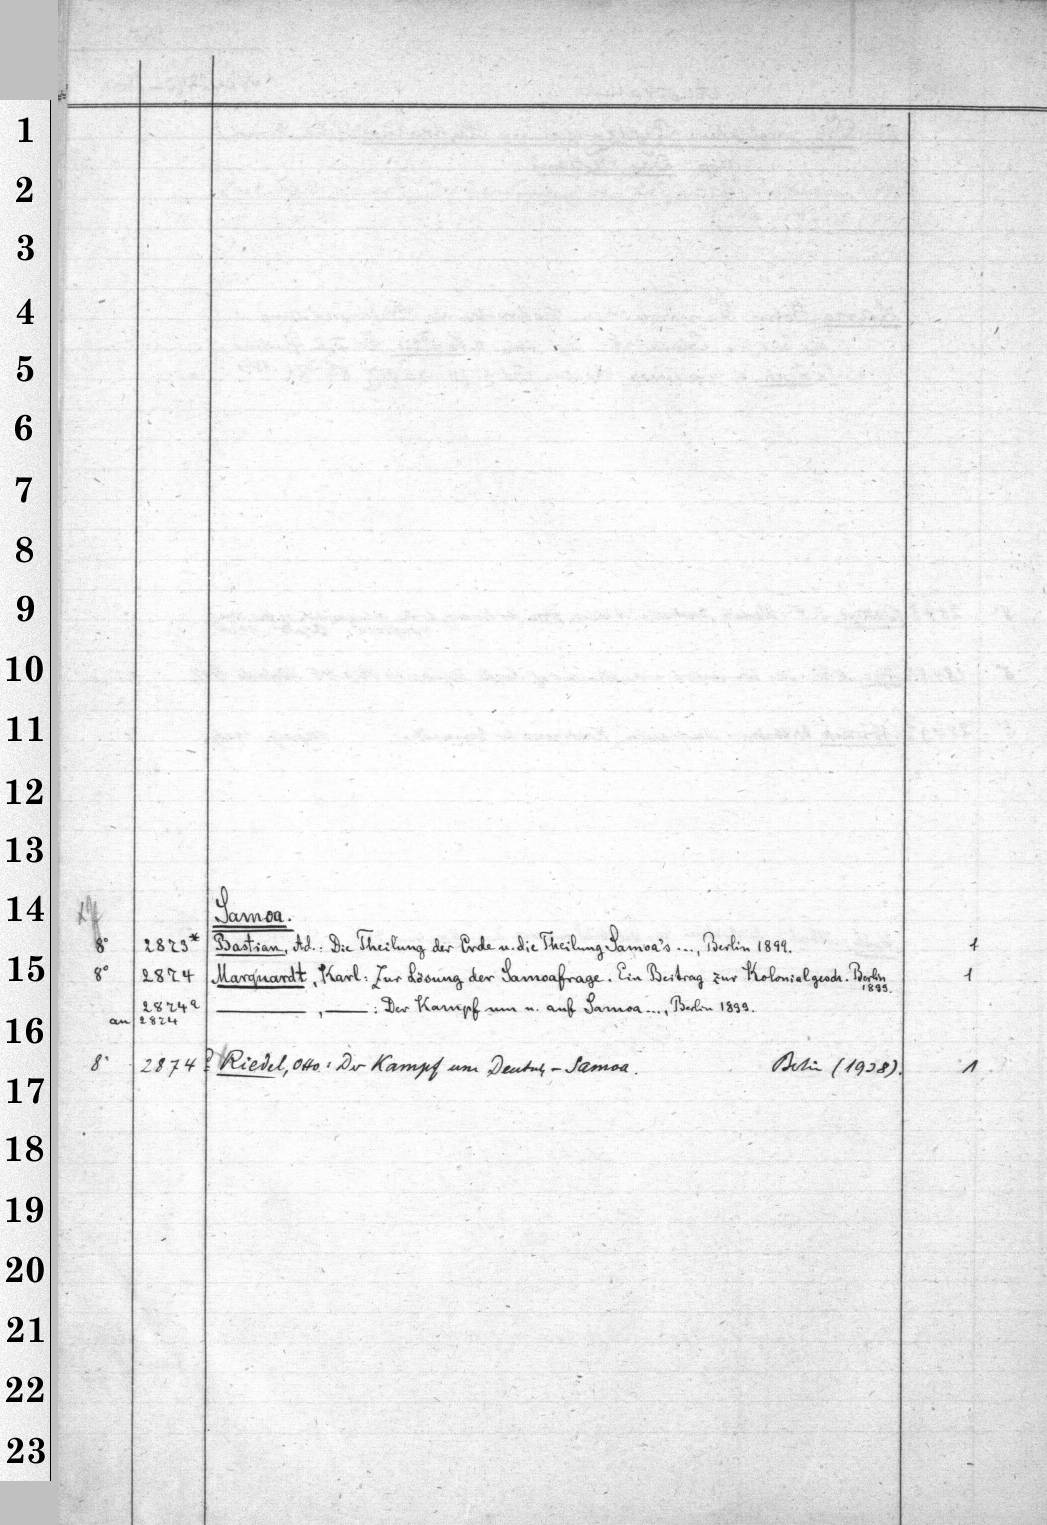 1
2
3
4
5
6
7
8
9
10
11
12
13
14
Samoa.
8° 2873* Bastian, Ad.: Die Theilung der Erde u. die Theilung Samoa's ..., Berlin 1899. 1
15
8° 2874 Marquardt, Karl: Zur Lösung der Samoafrage. Ein Beitrag zur Kolonialgesch. Berlin 1
1899.
2874a ———, ——: Der Kampf um u. auf Samoa ..., Berlin 1899.
an 2874
16
8° 2874 Riedel, Otto: Der Kampf um Deutsch-Samoa. Berlin (1928). 1
17
18
19
20
21
22
23